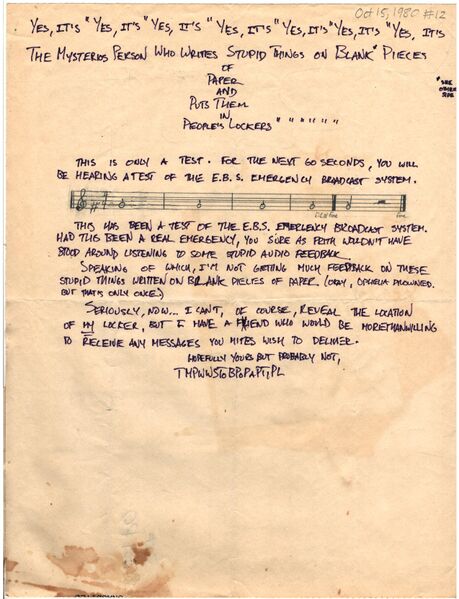 Oct 15, 1980 #12
YES, IT'S "YES, IT'S "YES, IT'S "YES, IT'S "YES, IT'S "YES, IT'S "YES, IT'S
THE MYSTERIOS PERSON WHO WRITES STUPID THINGS ON BLANK* PIECES
OF
PAPER
AND
PUTS THEM
IN
PEOPLE'S LOCKERS " " " " " "
*SEE
OTHER
SIDE
THIS IS ONLY A TEST. FOR THE NEXT 60 SECONDS, YOU WILL
BE HEARING A TEST OF THE E.B.S. EMERGENCY BROADCAST SYSTEM.
Fine
THIS HAS BEEN A TEST OF THE E.B.S. EMERGENCY BROADCAST SYSTEM.
HAD THIS BEEN A REAL EMERGENCY, YOU SURE AS POTH WOULDN'T HAVE
STOOD AROUND LISTENING TO SOME STUPID AUDIO FEEDBACK.
SPEAKING OF WHICH, I'M NOT GETTING MUCH FEEDBACK ON THESE
STUPID THINGS WRITTEN ON BLANK PIECES OF PAPER. (OKAY, OPHELIA DROWNED.
BUT THAT'S ONLY ONCE.)
SERIOUSLY, NOW... I CAN'T, OF COURSE, REVEAL THE LOCATION
OF MY LOCKER, BUT I HAVE A FRIEND WHO WOULD BE MORETHANWILLING
TO RECEIVE ANY MESSAGES YOU MITES WISH TO DELIVER.
HOPEFULLY YOURS BUT PROBABLY NOT,
TMPWWSTOBPOPAPTIPL